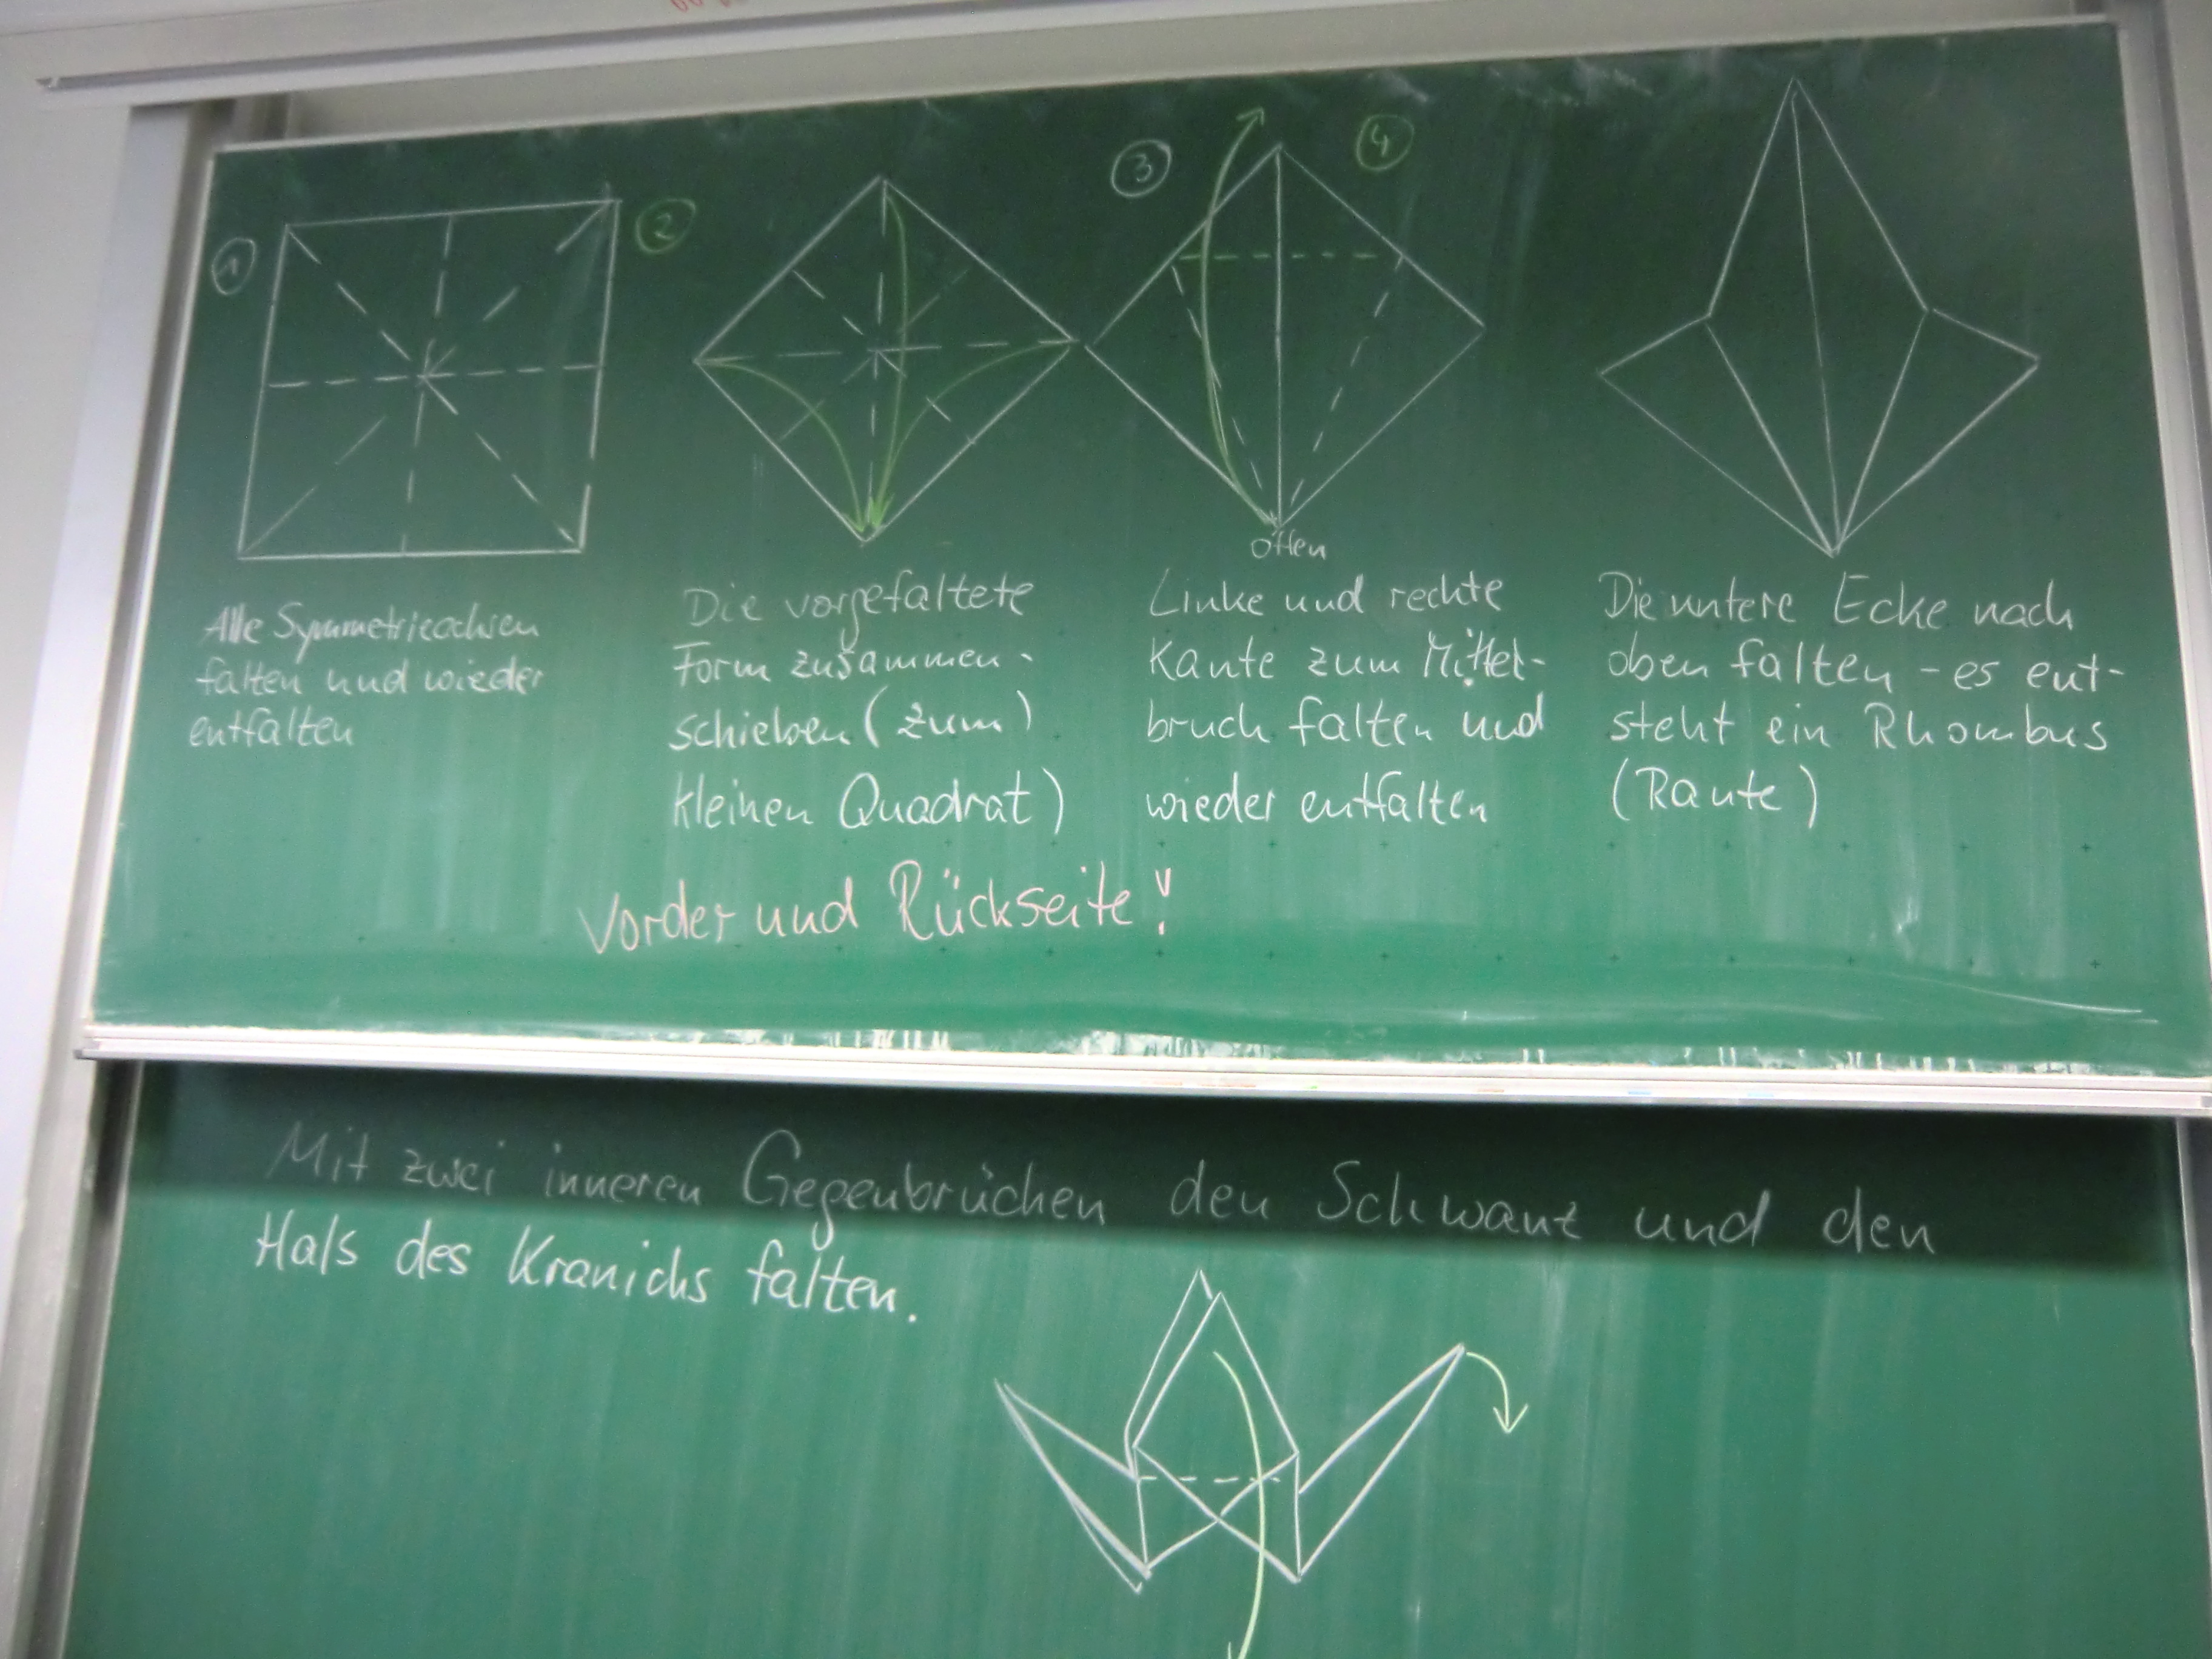 1
Alle Symmetrieachsen
falten und wieder
entfalten
2
Die vorgefaltete
Form zusammen-
schieben (zum)
kleinen Quadrat)
3
offen
Linke und rechte
Kante zum Mittel-
bruch falten und
wieder entfalten
4
Die untere Ecke nach
oben falten - es ent-
steht ein Rhombus
(Raute)
Vorder und Rückseite!
Mit zwei inneren Gegenbrüchen den Schwanz und den
Hals des Kranichs falten.